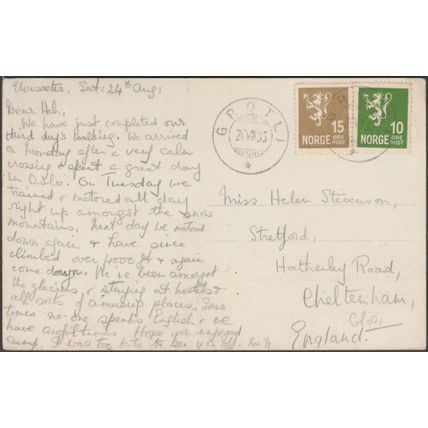 Elveseter. Sat: 24th Aug:
Dear Hel.,
We have just completed our
third day's walking. We arrived
on Monday after a very calm
crossing & spent a great day
in Oslo. On Tuesday we
trained & motored all day
right up amongst the snow
mountains. Next day we motored
down again & have since
climbed over 4000 ft & again
come down. We've been amongst
the glaciers, & staying at hostels &
all sorts of amusing places. Some
times no-one speaks English & we
have awful times. Hope you enjoyed
camp, I was too late to see you off.
GROTLI
NORGE
15
ØRE
POST
NORGE
10
ØRE
POST
Miss Helen Stevenson,
Stretford,
Hatherley Road,
Cheltenham,
Glos.
England.